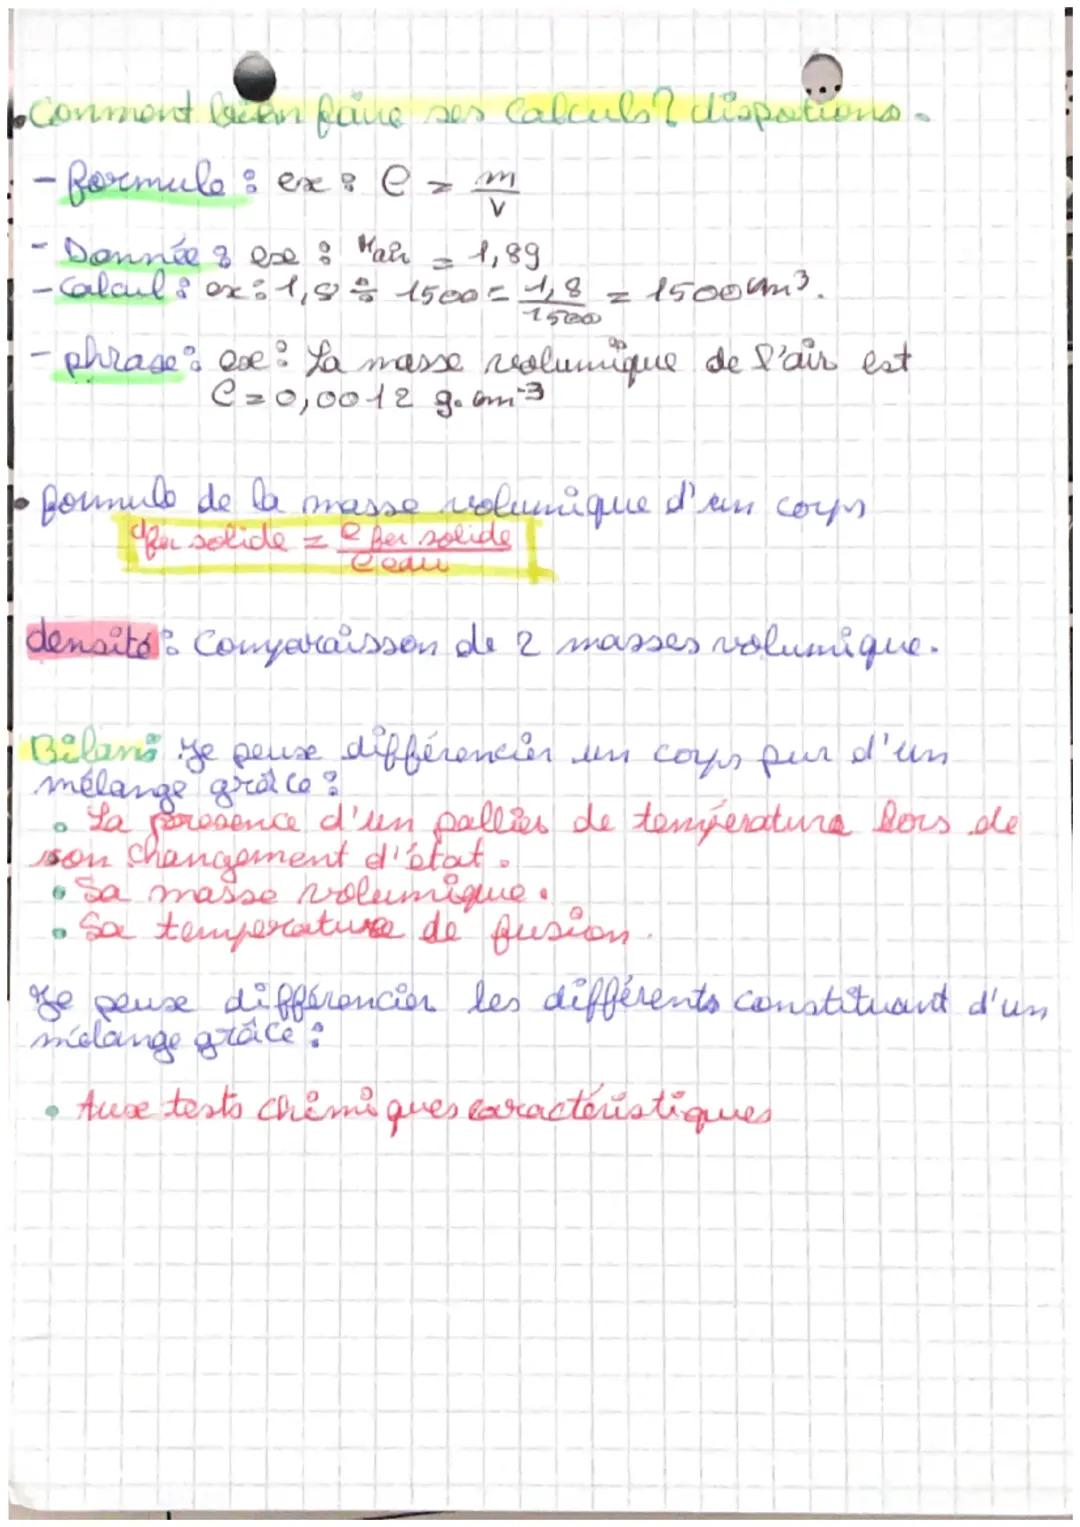 Comment bien faire ses Calculs? dispotions.
- formule : ex : ρ = m/V
- Donnée : exe : Mair = 1,8g
- Calcul : ex : 1,8 ÷ 1500 = 1,8/1500 = 1500cm³.
- phrase : exe : La masse volumique de l'air est
ρ = 0,0012 g.cm-3
• formule de la masse volumique d'un corps
dfer solide = ρ fer solide / ρ eau
densité : Comparaisson de 2 masses volumique.
Bilan : Je peux différencier un corps pur d'un
mélange grâce :
• La présence d'un pallier de température lors de
son changement d'état.
• Sa masse volumique.
• Sa temperature de fusion.
Je peux différencier les différents constituant d'un
mélange grâce :
• Aux tests chimiques caractéristiques